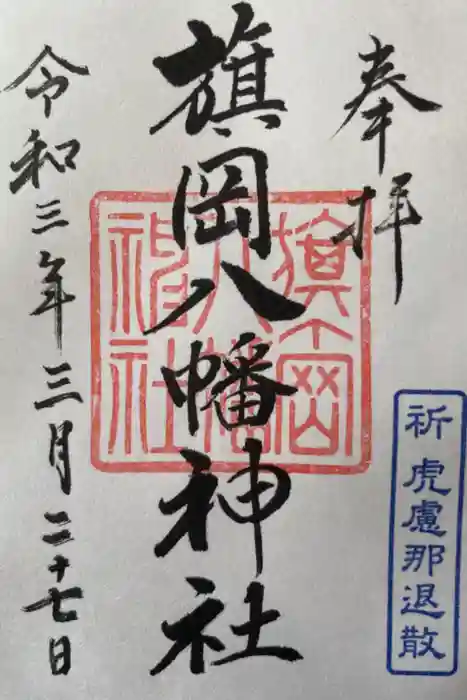 奉拝
祈 虎慮那退散
旗岡八幡神社
旗岡八幡神社
令和三年三月二十七日